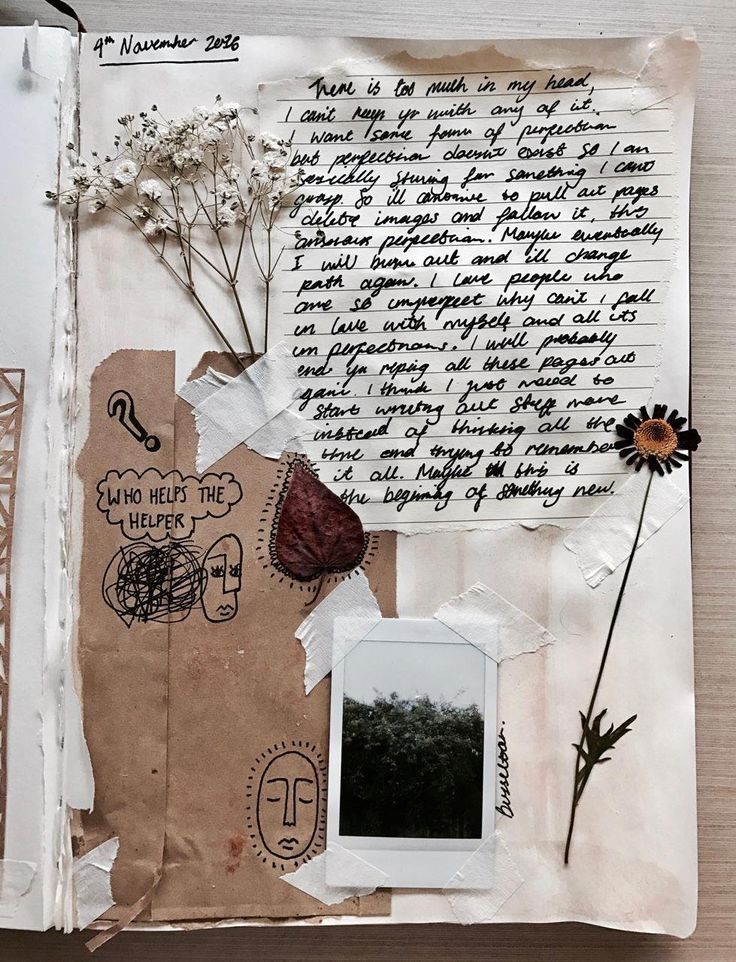 4th November 2016
There is too much in my head,
I can't keep up with any of it.
I want some form of perfection
but perfection doesn't exist so I am
basically striving for something I can't
grasp. So i'll continue to pull out pages
delete images and follow it, this
anxious perfection. Maybe eventually
I will burn out and ill change
path again. I love people who
are so imperfect why can't I fall
in love with myself and all its
imperfections. I will probably
end up ripping all these pages out
again. I think I just need to
start writing out stuff more
instead of thinking all the
time and trying to remember
it all. Maybe this is
the beginning of something new.
?
WHO HELPS THE
HELPER